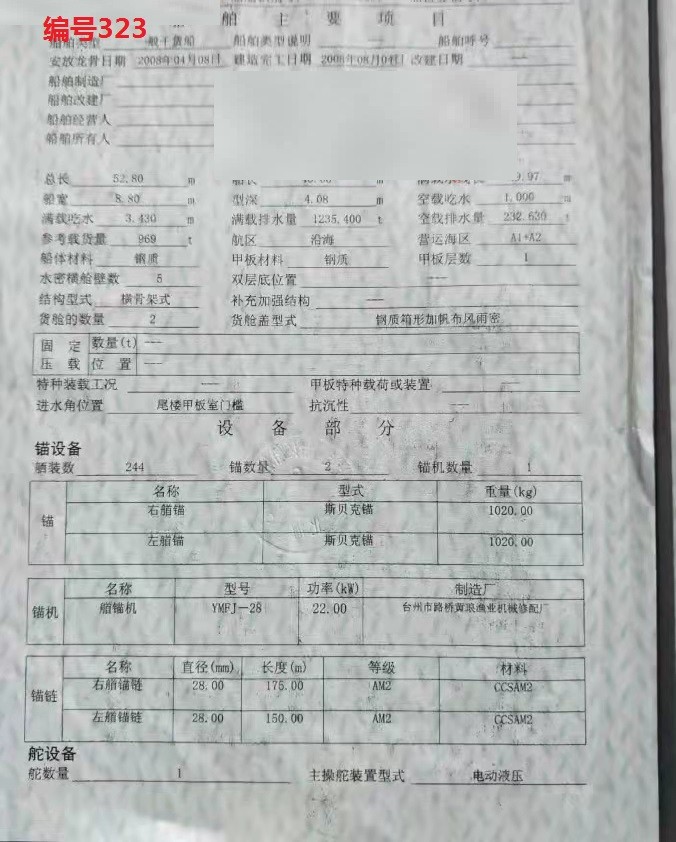 编号323
船舶主要项目
船舶类型 一般干货船 船舶类型说明 — 船舶呼号
安放龙骨日期 2008年04月08日 建造完工日期 2008年08月04日 改建日期 —
船舶制造厂
船舶改建厂
船舶经营人
船舶所有人
总长 52.80 m 船长 m .97 m
船宽 8.80 m 型深 4.08 m 空载吃水 1.000 m
满载吃水 3.430 m 满载排水量 1235.400 t 空载排水量 232.630 t
参考载货量 969 t 航区 沿海 营运海区 A1+A2
船体材料 钢质 甲板材料 钢质 甲板层数 1
水密横舱壁数 5 双层底位置 —
结构型式 横骨架式 补充加强结构 —
货舱的数量 2 货舱盖型式 钢质箱形加帆布风雨密
固定 数量(t) —
压载 位置 —
特种装载工况 — 甲板特种载荷或装置 —
进水角位置 尾楼甲板室门槛 抗沉性 —
设备部分
锚设备
舾装数 244 锚数量 2 锚机数量 1
名称 型式 重量(kg)
锚
右艏锚 斯贝克锚 1020.00
左艏锚 斯贝克锚 1020.00
名称 型号 功率(kW) 制造厂
锚机 艏锚机 YMFJ-28 22.00 台州市路桥黄琅渔业机械修配厂
名称 直径(mm) 长度(m) 等级 材料
锚链
右艏锚链 28.00 175.00 AM2 CCSAM2
左艏锚链 28.00 150.00 AM2 CCSAM2
舵设备
舵数量 1 主操舵装置型式 电动液压